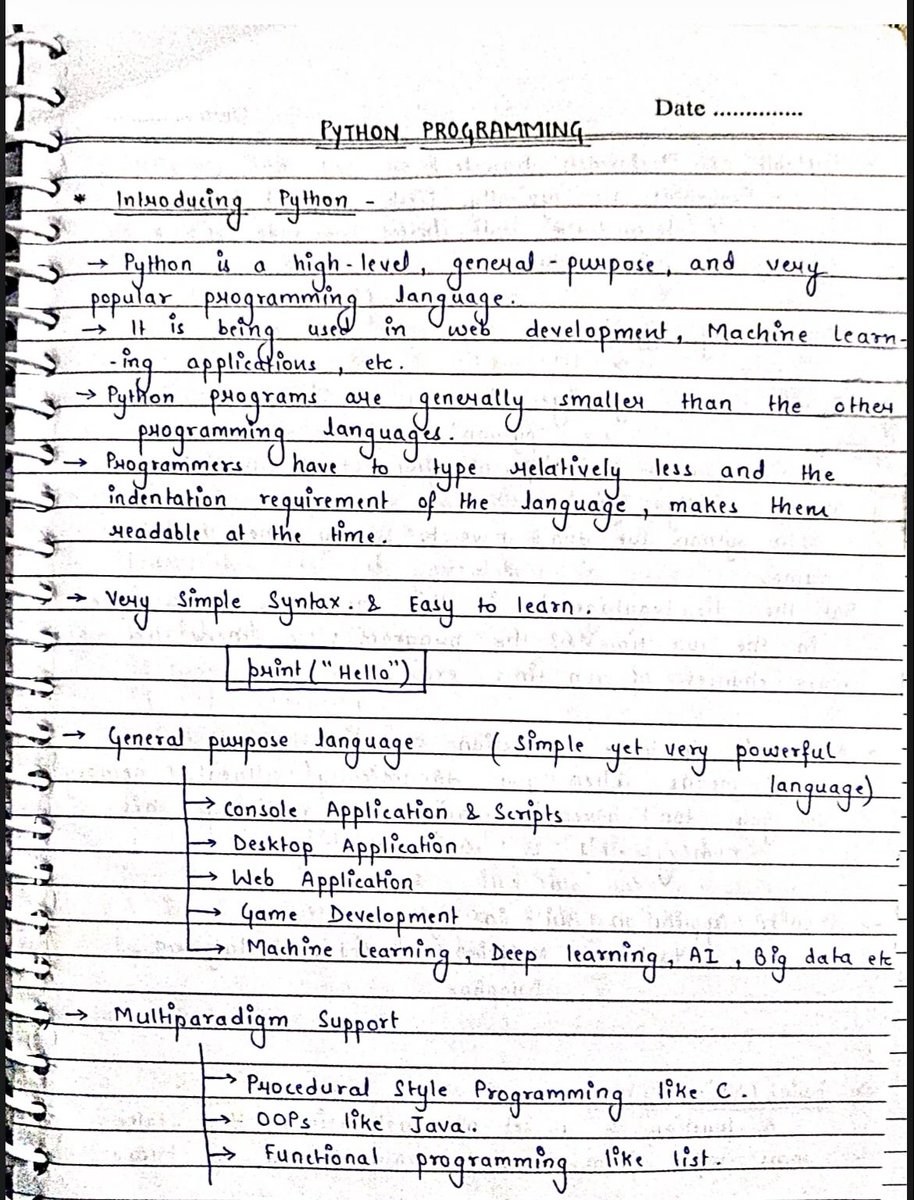 Date ..............
PYTHON PROGRAMMING
* Introducing Python -
→ Python is a high-level, general-purpose, and very
popular programming language.
→ It is being used in web development, Machine learn-
-ing applications, etc.
→ Python programs are generally smaller than the other
programming languages.
→ Programmers have to type relatively less and the
indentation requirement of the language, makes them
readable at the time.
→ Very Simple Syntax. & Easy to learn.
print ("Hello")
→ General purpose language ( Simple yet very powerful
language)
→ Console Application & Scripts
→ Desktop Application
→ Web Application
→ Game Development
→ Machine Learning, Deep learning, AI, Big data etc
→ Multiparadigm Support
→ Procedural Style Programming like C.
→ OOPs like Java.
→ Functional programming like list.